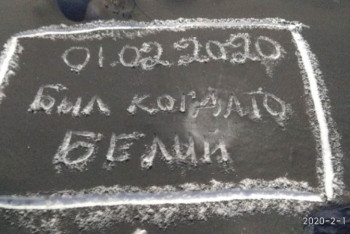 01.02 2020
Был когдато
БЕЛИЙ
2020-2-1